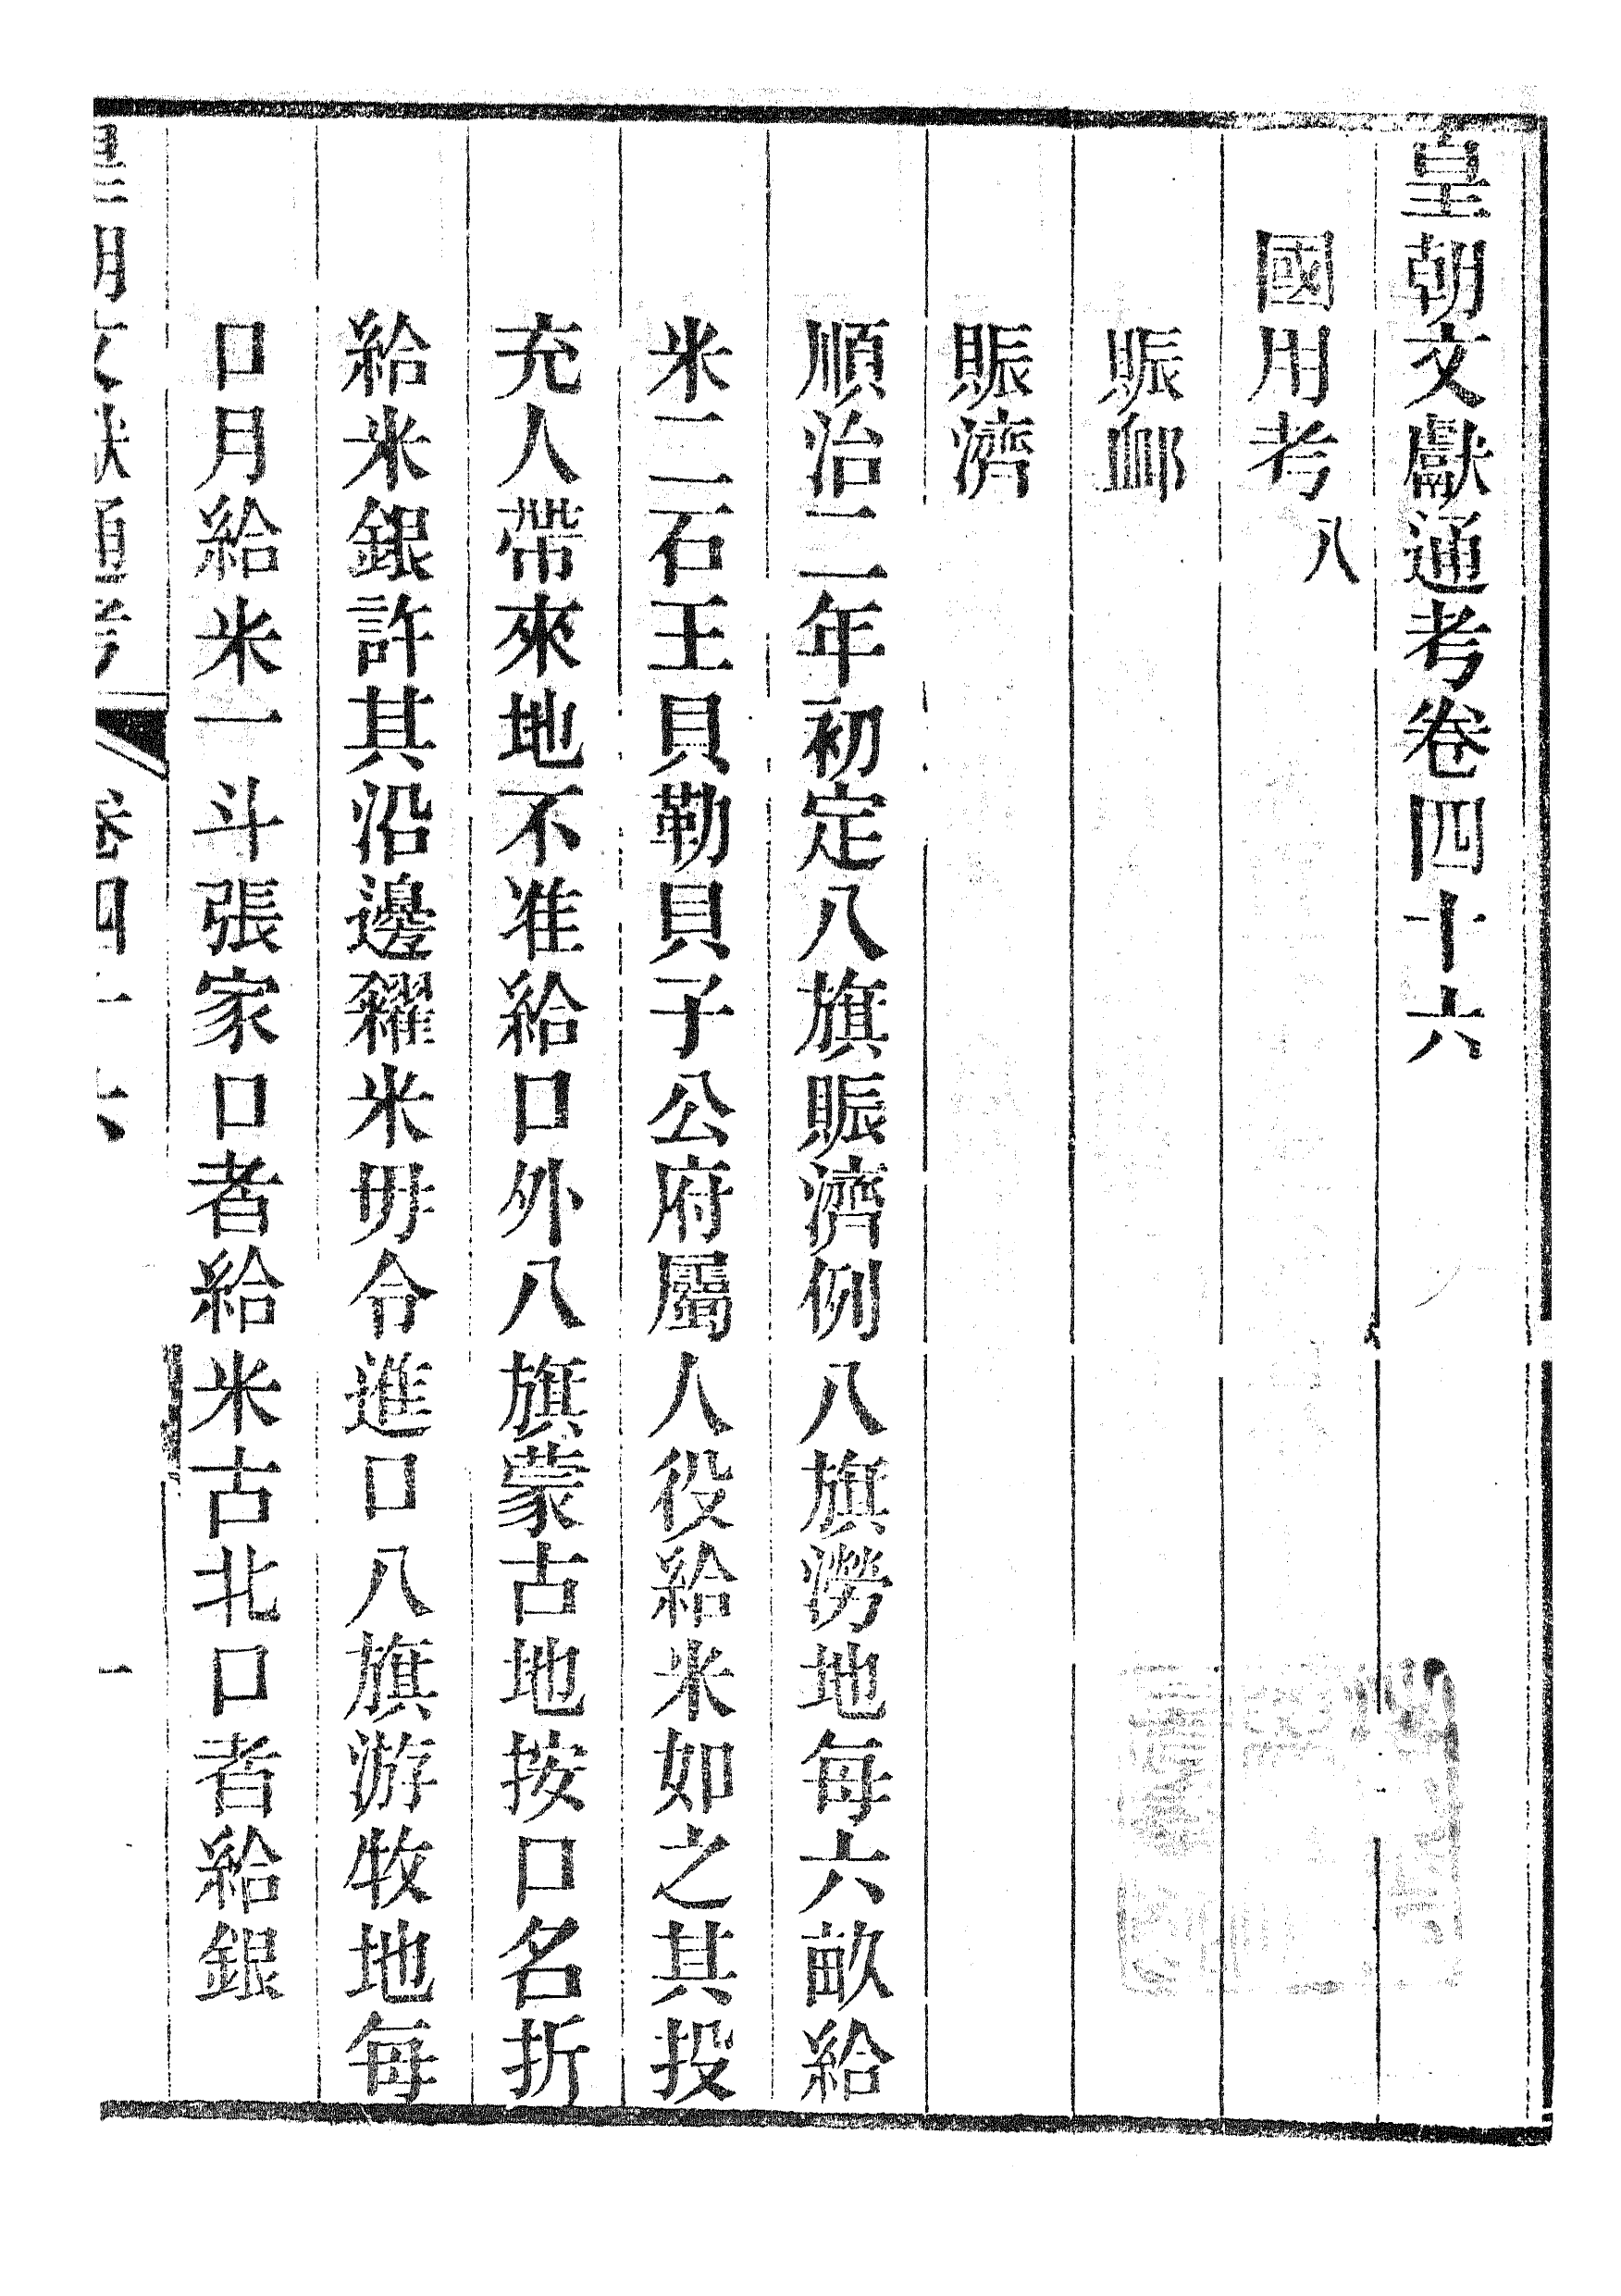 皇朝文獻通考卷四十六
國用考八
賑䘏
賑濟
順治二年初定八旗賑濟例八旗澇地每六畝給
米二石王貝勒貝子公府屬人役給米如之其投
充人帶來地不准給口外八旗蒙古地按口名折
給米銀許其沿邊糴米毋令進口八旗游牧地每
口月給米一斗張家口者給米古北口者給銀
皇朝文獻通考 卷四十六 一